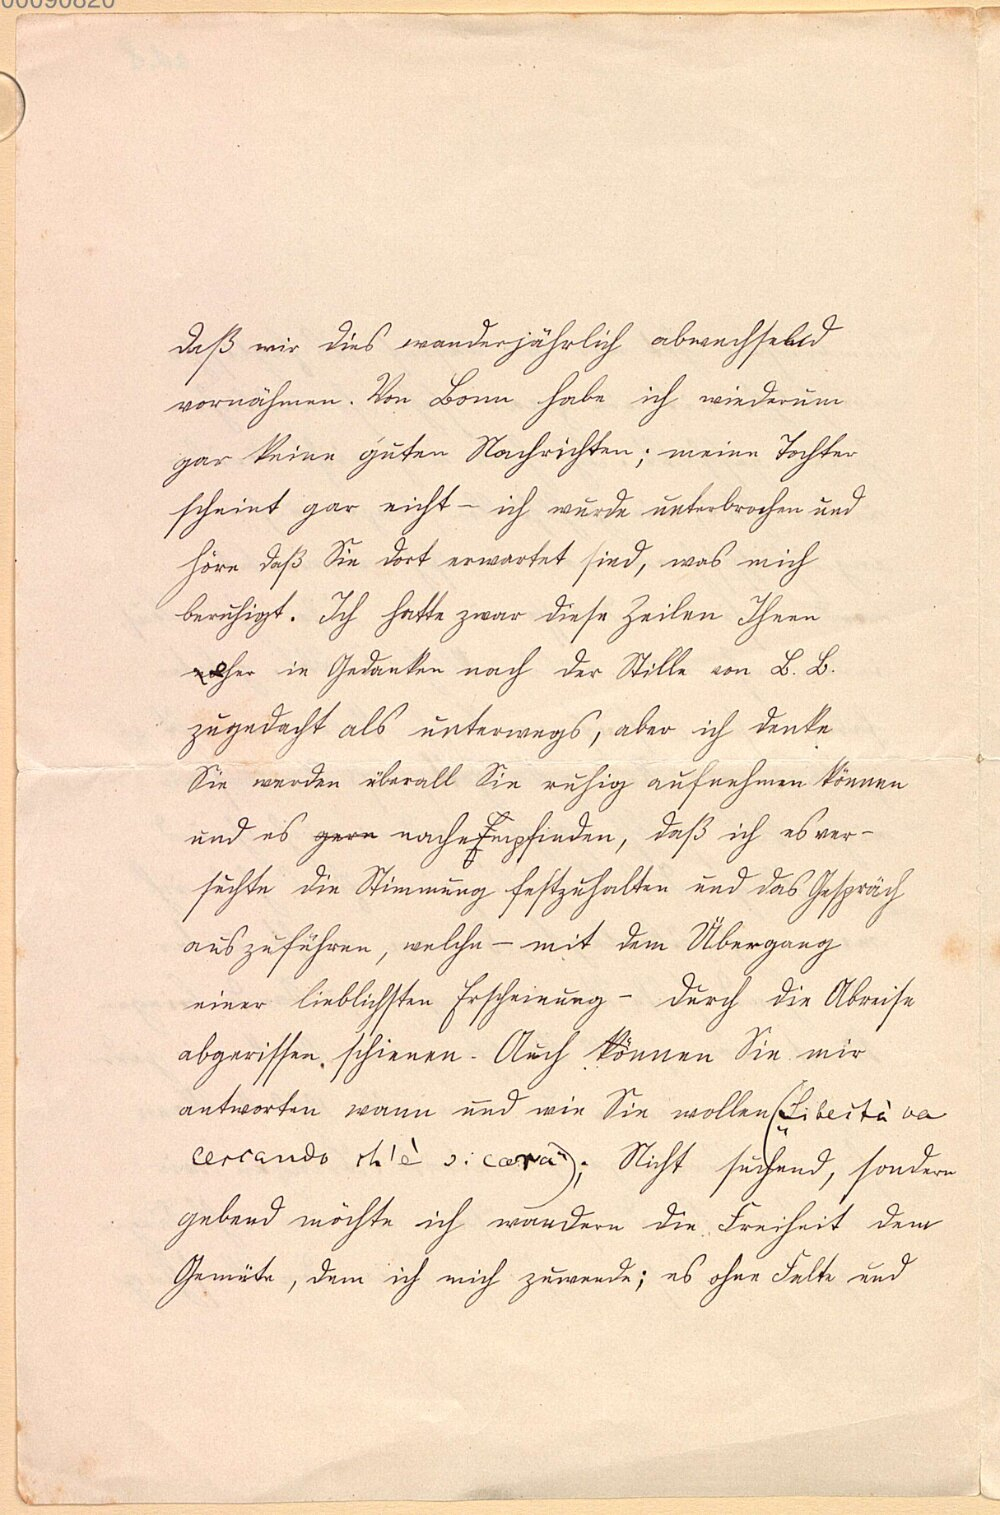 00090820
daß wir dies wanderjährlich abwechselnd
vornähmen. Von Bonn habe ich wiederum
gar keine guten Nachrichten; meine Tochter
scheint gar nicht – ich wurde unterbrochen und
höre daß Sie dort erwartet sind, was mich
beruhigt. Ich hatte zwar diese Zeilen Ihnen
eher in Gedanken nach der Stille von B. B.
zugedacht als unterwegs, aber ich denke
Sie werden überall Sie ruhig aufnehmen können
und es gern nachempfinden, daß ich es ver-
suchte die Stimmung festzuhalten und das Gespräch
auszuführen, welche – mit dem Übergang
einer lieblichsten Erscheinung – durch die Abreise
abgerissen schienen. Auch können Sie mir
antworten wann und wie Sie wollen („Libertà va
cercando ch'è si cara“); Nicht suchend, sondern
gebend möchte ich wandern die Freiheit dem
Gemüte, dem ich mich zuwende; es ohne Falte und